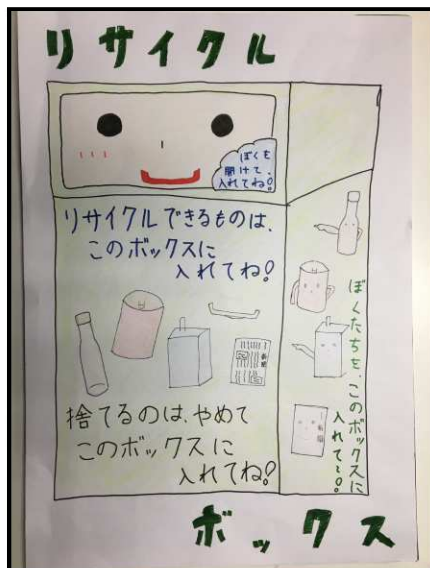 リサイクル
ぼくを
開けて、
入れてね!
リサイクルできるものは、
このボックスに
入れてね!
ぼくたちを、このボックスに
入れて〜!
新聞
捨てるのは、やめて
このボックスに
入れてね!
ボックス